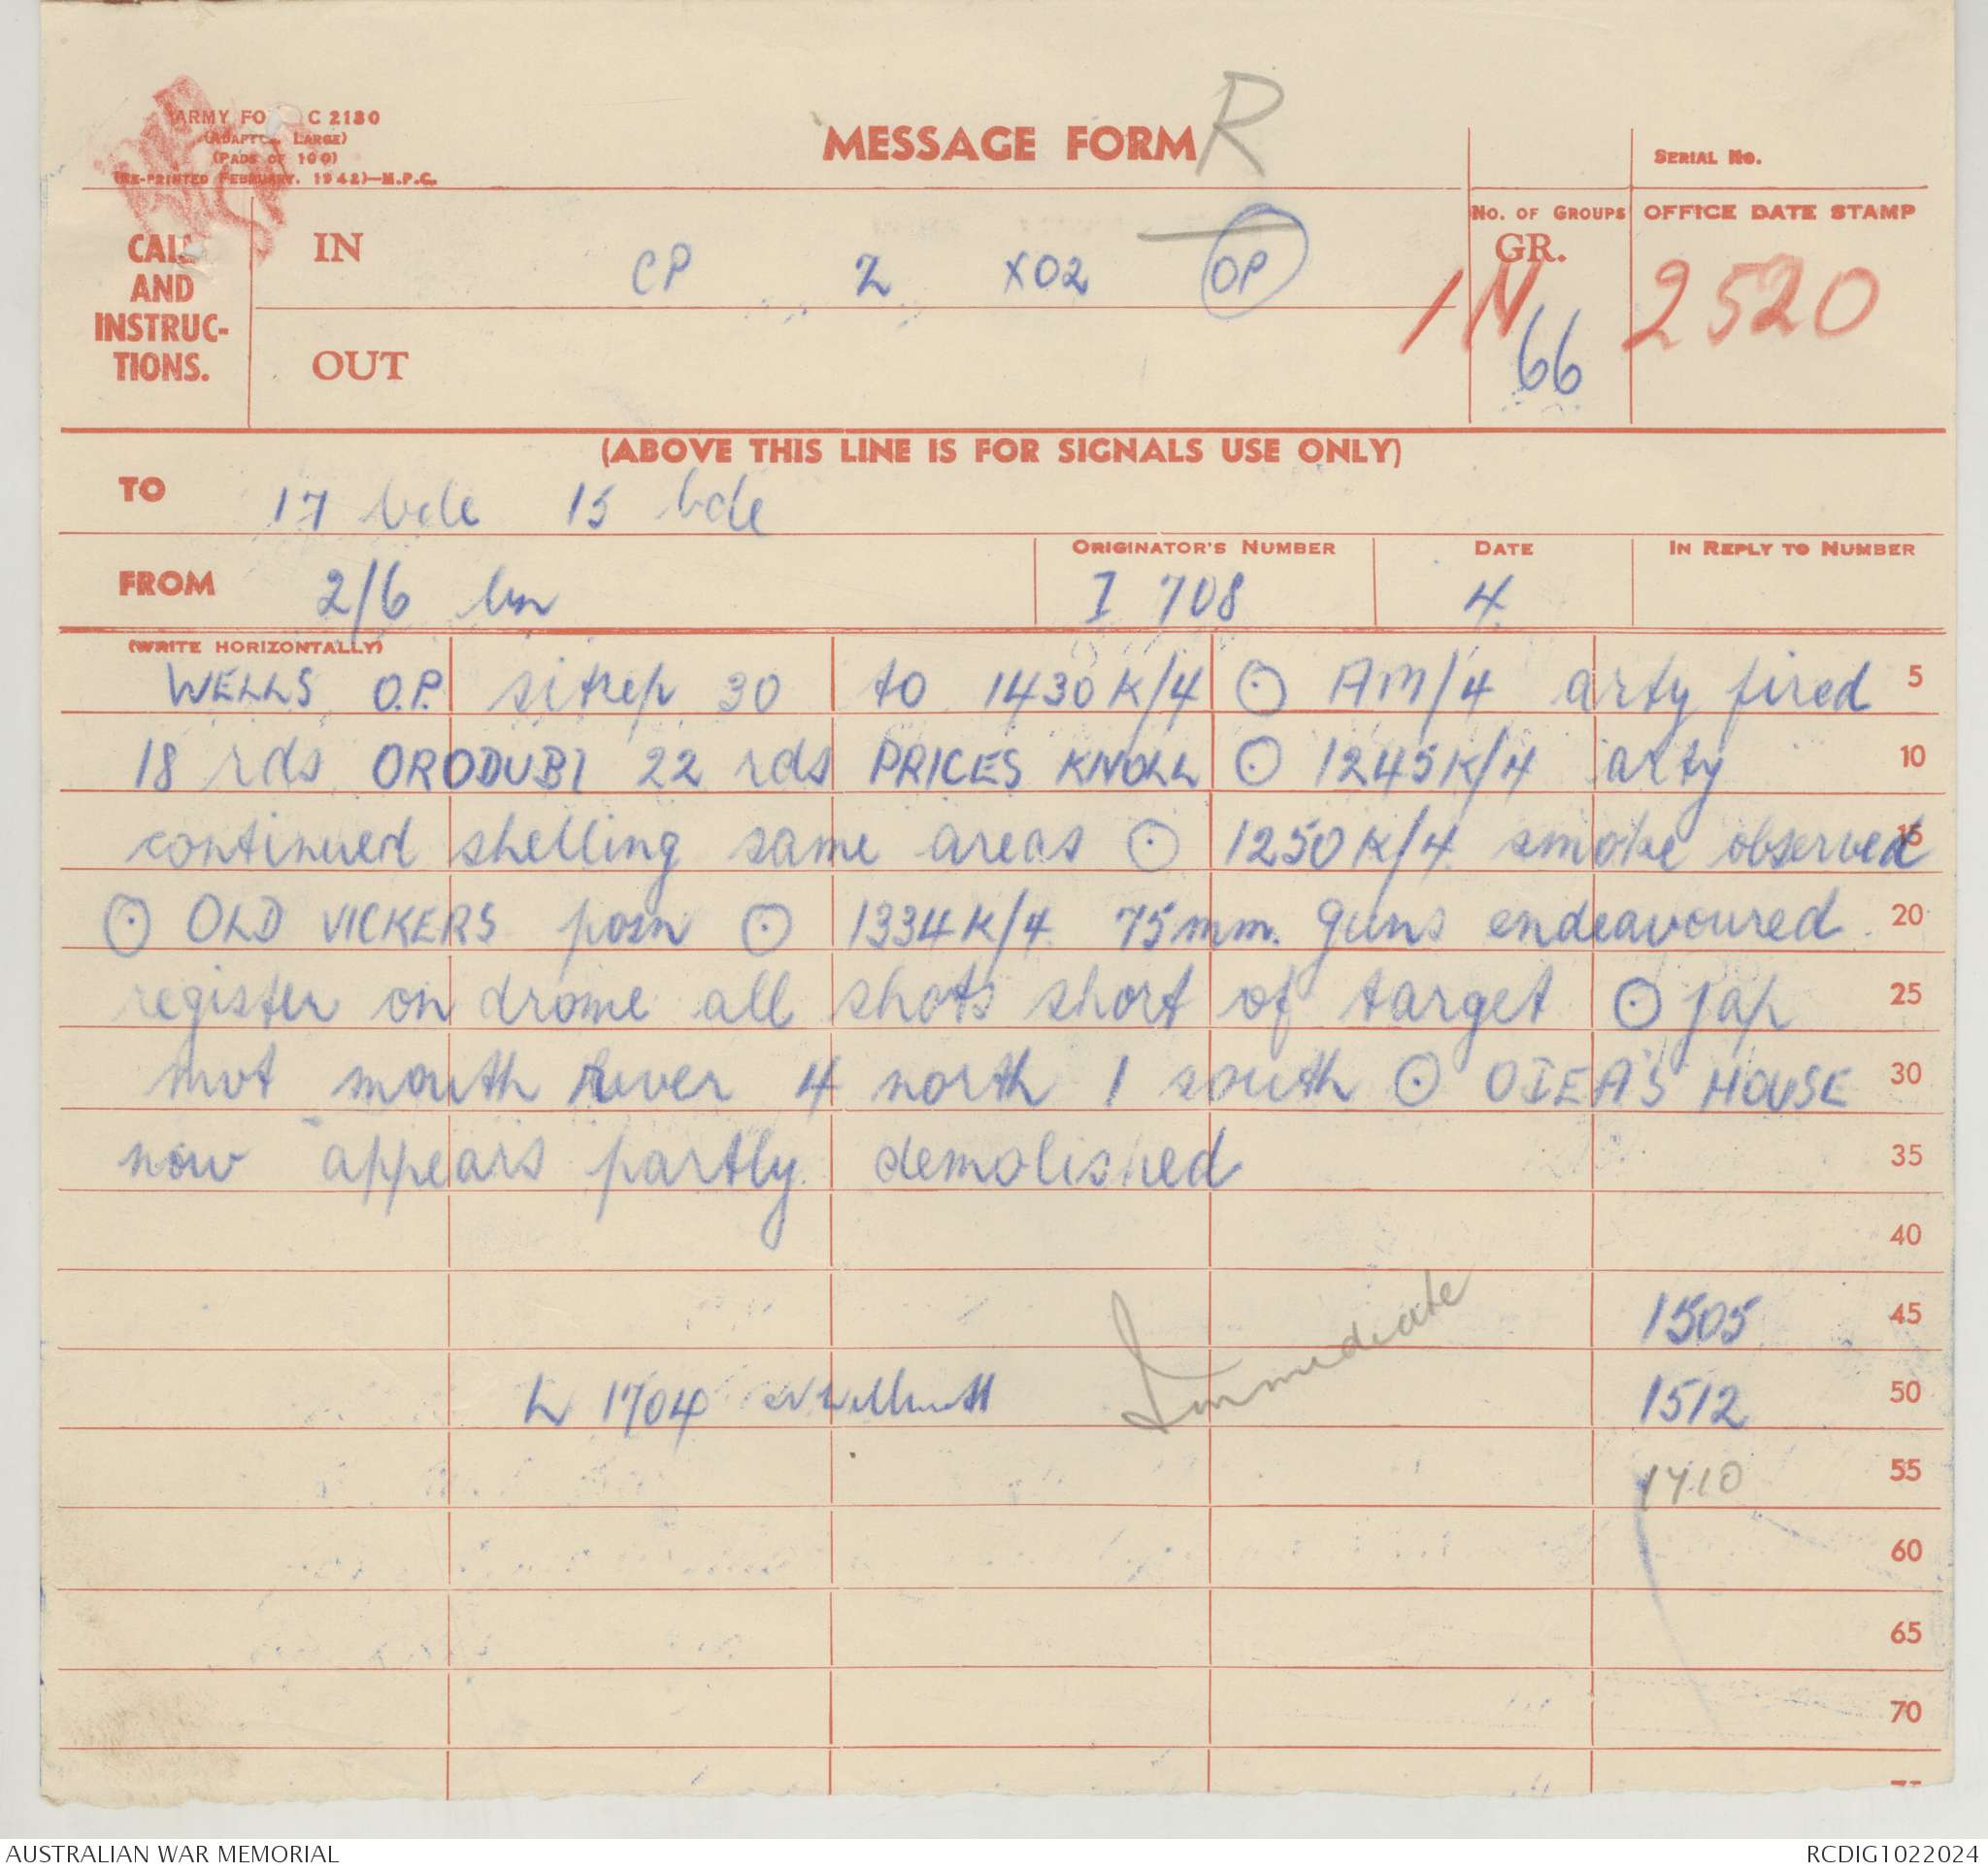 ARMY FO C 2180
(ADAPTED LARGE)
(PADS OF 100)
(RE-PRINTED FEBRUARY, 1942)—M.P.C.
MESSAGE FORM R
SERIAL NO.
CALL
AND
INSTRUC-
TIONS.
IN CP Z X02 OP
OUT
NO. OF GROUPS
GR.
66
OFFICE DATE STAMP
IN 2520
(ABOVE THIS LINE IS FOR SIGNALS USE ONLY)
TO 17 bde 15 bde
FROM 2/6 bn
ORIGINATOR'S NUMBER
I 708
DATE
4
IN REPLY TO NUMBER
(WRITE HORIZONTALLY)
WELLS O.P. sitrep 30 to 1430K/4 ⊙ AM/4 arty fired 5
18 rds ORODUBI 22 rds PRICES KNOLL ⊙ 1245K/4 arty 10
continued shelling same areas ⊙ 1250K/4 smoke observed 15
⊙ OLD VICKERS posn ⊙ 1334K/4 75mm. guns endeavoured 20
register on drome all shots short of target ⊙ jap 25
mvt mouth River 4 north 1 south ⊙ OIEA'S HOUSE 30
now appears partly demolished 35
40
1505 45
L 1704 Immediate 1512 50
1710 55
60
65
70
AUSTRALIAN WAR MEMORIAL
RCDIG1022024